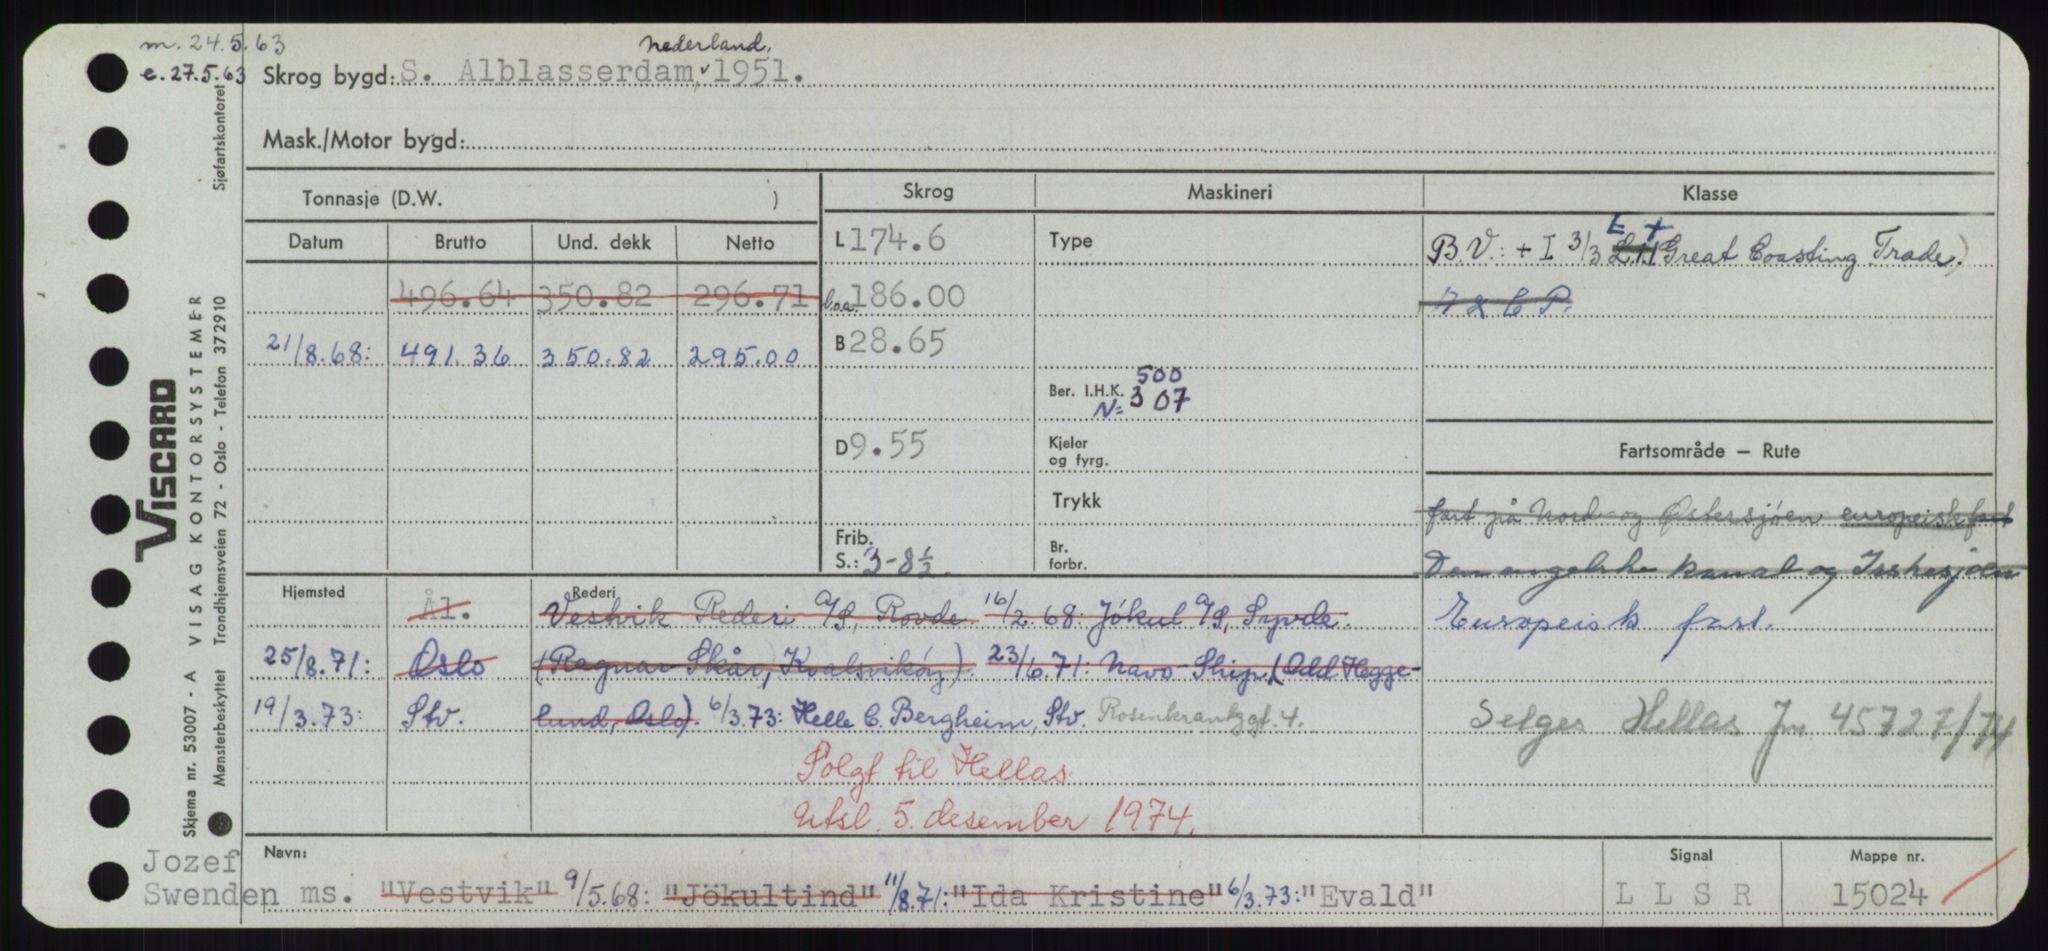 m. 24.5.63
e. 27.5.63
nederland.
Skrog bygd: S. Alblasserdam, 1951.
Mask./Motor bygd:
Tonnasje (D.W. )
Skrog
Maskineri
Klasse
Datum Brutto Und. dekk Netto
L 174.6
Type
E +
B.V.: + I 3/3 Great Coasting Trade.)
496.64 350.82 296.71
l.o.a. 186.00
A & C P.
21/8.68: 491.36 350.82 295.00
B 28.65
500
Ber. I.H.K. 307
N=
D 9.55
Kjeler
og fyrg.
Fartsområde – Rute
Trykk
fart på Nord- og Østersjøen europeisk fart
Frib.
S.: 3-8½
Br.
forbr.
Den engelske kanal og Irskesjøen
Hjemsted
Ål.
Rederi
Vestvik Rederi A/S, Rovde. 16/2.68: Jökul A/S, Syvde.
Europeisk fart.
25/8.71: Oslo
(Ragnar Skår, Kvalsvikøy). 23/6.71: Navo-Ship, (Odd Hegge-
19/3.73: Stv.
lund, Oslo). 6/3.73: Helle C. Bergheim, Stv. Rosenkrantzgt. 4.
Selges Hellas Jnr. 45727/74
Solgt til Hellas.
Utsl. 5. desember 1974.
Navn:
Signal
Mappe nr.
Jozef
Swenden ms. "Vestvik" 9/5.68: "Jökultind" 11/8.71: "Ida Kristine" 6/3.73: "Evald"
L L S R
15024
VISCARD
Skjema nr. 53007 - A VISAG KONTORSYSTEMER Sjøfartskontoret
Mønsterbeskyttet Trondhjemsveien 72 - Oslo - Telefon 372910